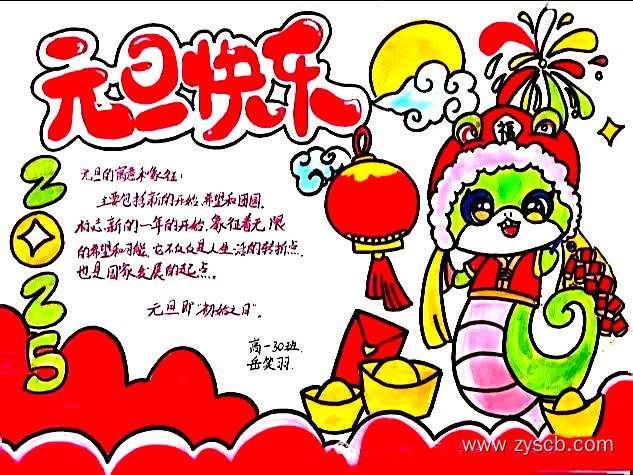 元旦快乐
2025
元旦的寓意和象征:
主要包括新的开始,希望和团圆,
标志新的一年的开始,象征着无限
的希望和可能,它不仅仅是人生活的转折点,
也是国家发展的起点。
元旦即"初始之日"。
高一30班
岳笑羽
福
www.zyscb.com